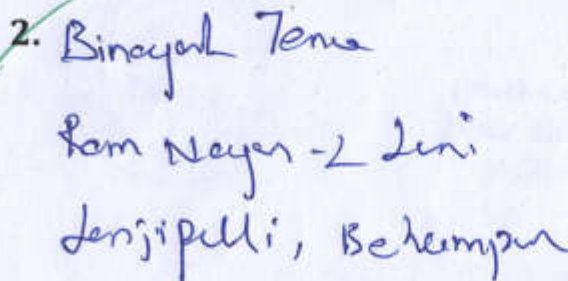 2. Binayak Jena
Ram Nagar - 2 Line
Lanjipalli, Berhampur